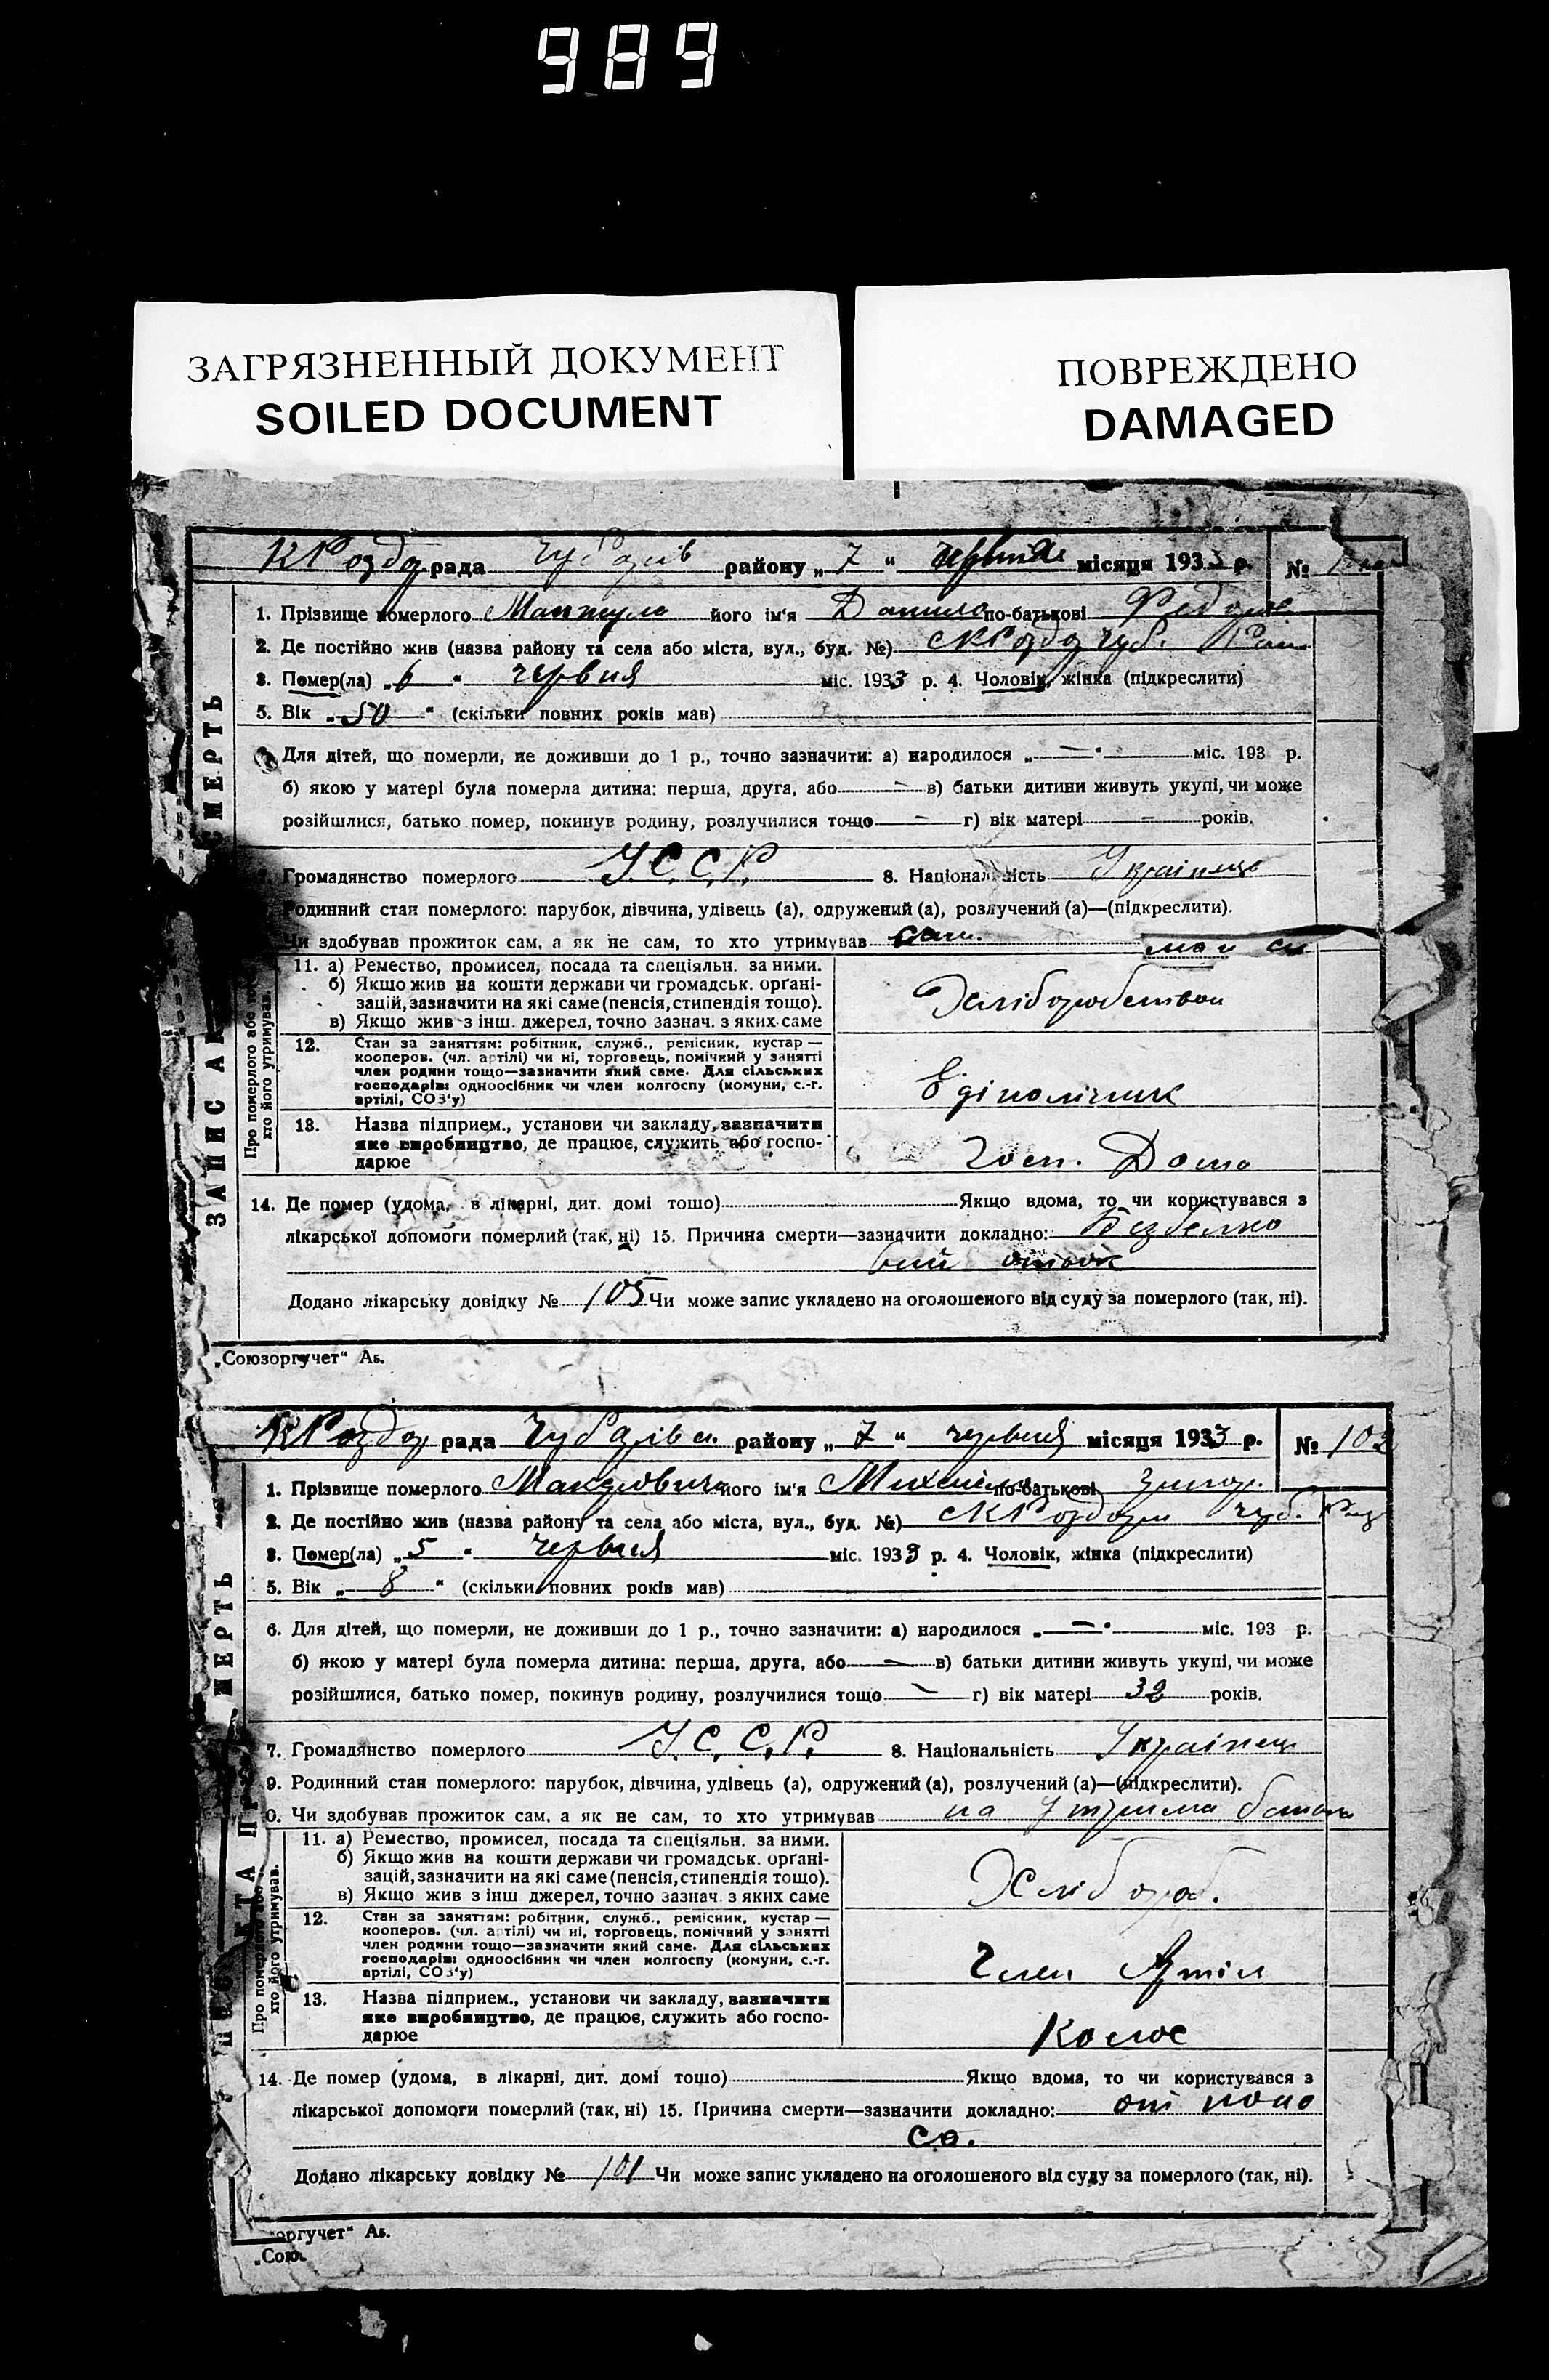 989
ЗАГРЯЗНЕННЫЙ ДОКУМЕНТ
SOILED DOCUMENT
ПОВРЕЖДЕНО
DAMAGED
рада району „ 7 “ місяця 1933 р. №
1. Прізвище померлого його ім'я Данило по-батькові
2. Де постійно жив (назва району та села або міста, вул., буд. №)
3. Помер(ла) „ 6 “ червня міс. 1933 р. 4. Чоловік, жінка (підкреслити)
5. Вік „ 50 “ (скільки повних років мав)
Для дітей, що померли, не доживши до 1 р., точно зазначити: а) народилося „ — “ міс. 193 р.
б) якою у матері була померла дитина: перша, друга, або — в) батьки дитини живуть укупі, чи може
розійшлися, батько помер, покинув родину, розлучилися тощо — г) вік матері — років.
Громадянство померлого У.С.С.Р. 8. Національність Українець
Родинний стан померлого: парубок, дівчина, удівець (а), одружений (а), розлучений (а)—(підкреслити).
Чи здобував прожиток сам, а як не сам, то хто утримував сам.
11. а) Ремество, промисел, посада та спеціяльн. за ними.
б) Якщо жив на кошти держави чи громадськ. орґані-
зацій, зазначити на які саме (пенсія, стипендія тощо).
в) Якщо жив з інш. джерел, точно зазнач. з яких саме
12. Стан за заняттям: робітник, служб., ремісник, кустар —
кооперов. (чл. артілі) чи ні, торговець, помічний у занятті
член родини тощо—зазначити який саме. Для сільських
господарів: одноосібник чи член колгоспу (комуни, с.-г.
артілі, СОЗ'у)
13. Назва підприєм., установи чи закладу, зазначити
яке виробництво, де працює, служить або госпо-
дарює
14. Де помер (удома, в лікарні, дит. домі тощо) Якщо вдома, то чи користувався з
лікарської допомоги померлий (так, ні) 15. Причина смерти—зазначити докладно: Безбелко
вий отьок
Додано лікарську довідку № 105 Чи може запис укладено на оголошеного від суду за померлого (так, ні).
ЗАПИС А СМЕРТЬ
Про померлого або
хто його утримував.
„Союзоргучет“ Аь.
рада району „ 7 “ червня місяця 1933 р. № 102
1. Прізвище померлого його ім'я по-батькові
2. Де постійно жив (назва району та села або міста, вул., буд. №)
3. Помер(ла) „ 5 “ червня міс. 1933 р. 4. Чоловік, жінка (підкреслити)
5. Вік „ 8 “ (скільки повних років мав)
6. Для дітей, що померли, не доживши до 1 р., точно зазначити: а) народилося „ — “ міс. 193 р.
б) якою у матері була померла дитина: перша, друга, або — в) батьки дитини живуть укупі, чи може
розійшлися, батько помер, покинув родину, розлучилися тощо — г) вік матері 32 років.
7. Громадянство померлого У.С.С.Р. 8. Національність Українець
9. Родинний стан померлого: парубок, дівчина, удівець (а), одружений (а), розлучений (а)—(підкреслити).
0. Чи здобував прожиток сам, а як не сам, то хто утримував на
11. а) Ремество, промисел, посада та спеціяльн. за ними.
б) Якщо жив на кошти держави чи громадськ. орґані-
зацій, зазначити на які саме (пенсія, стипендія тощо).
в) Якщо жив з інш джерел, точно зазнач. з яких саме
Хлібороб.
12. Стан за заняттям: робітник, служб., ремісник, кустар —
кооперов. (чл. артілі) чи ні, торговець, помічний у занятті
член родини тощо—зазначити який саме. Для сільських
господарів: одноосібник чи член колгоспу (комуни, с.-г.
артілі, СОЗ'у)
Член Артіл
13. Назва підприєм., установи чи закладу, зазначити
яке виробництво, де працює, служить або госпо-
дарює
Колос
14. Де помер (удома, в лікарні, дит. домі тощо) Якщо вдома, то чи користувався з
лікарської допомоги померлий (так, ні) 15. Причина смерти—зазначити докладно: от поно
са.
Додано лікарську довідку № 101 Чи може запис укладено на оголошеного від суду за померлого (так, ні).
хто його утримував.
оргучет“ Аь.
„Союз